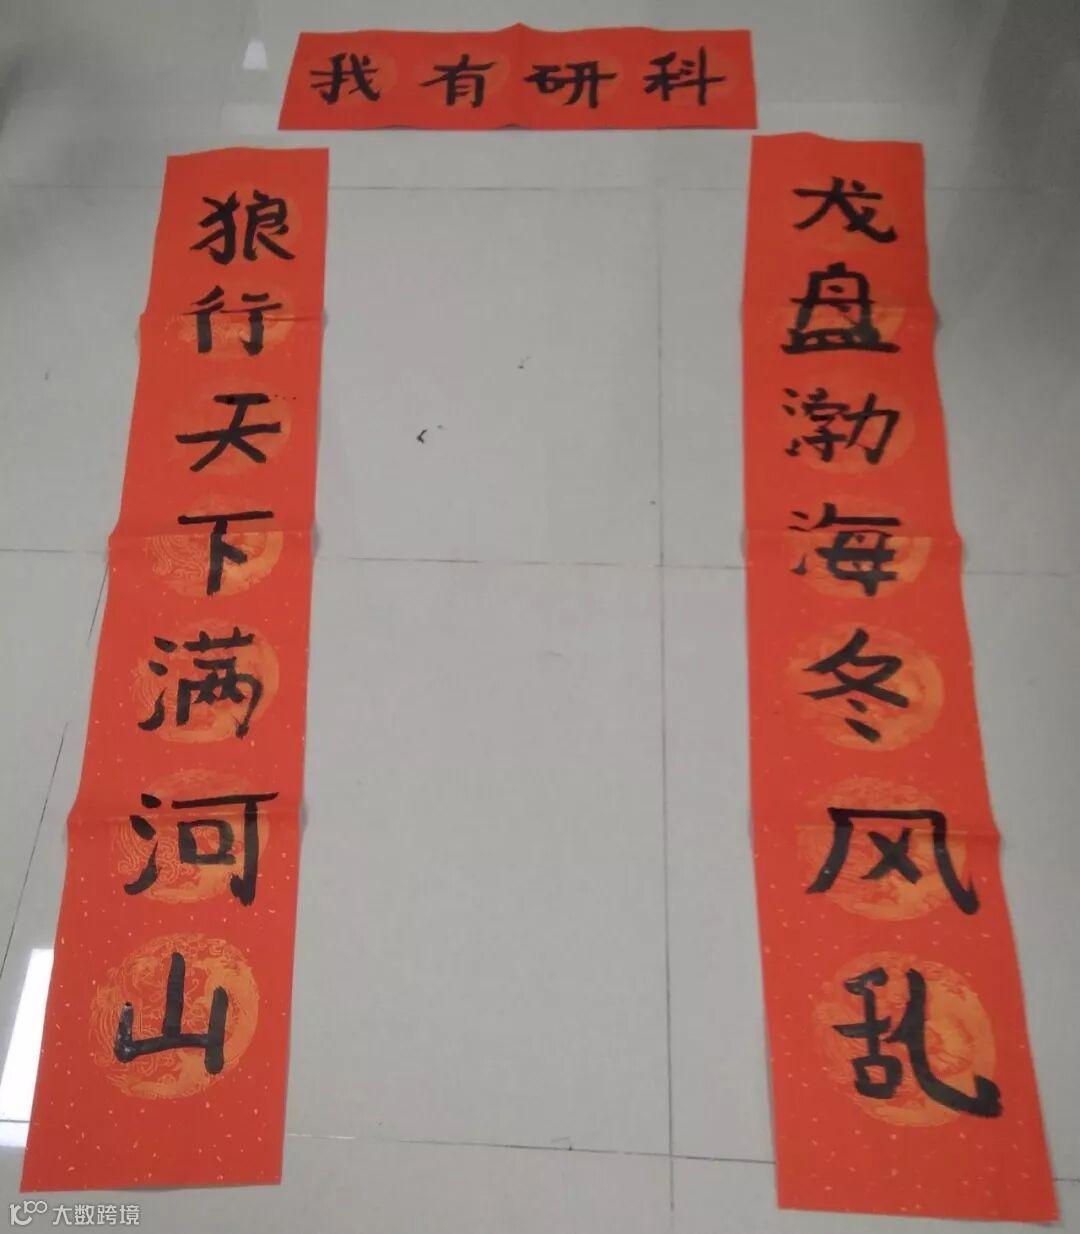 我有研科
龙盘渤海冬风乱
狼行天下满河山
大数跨境